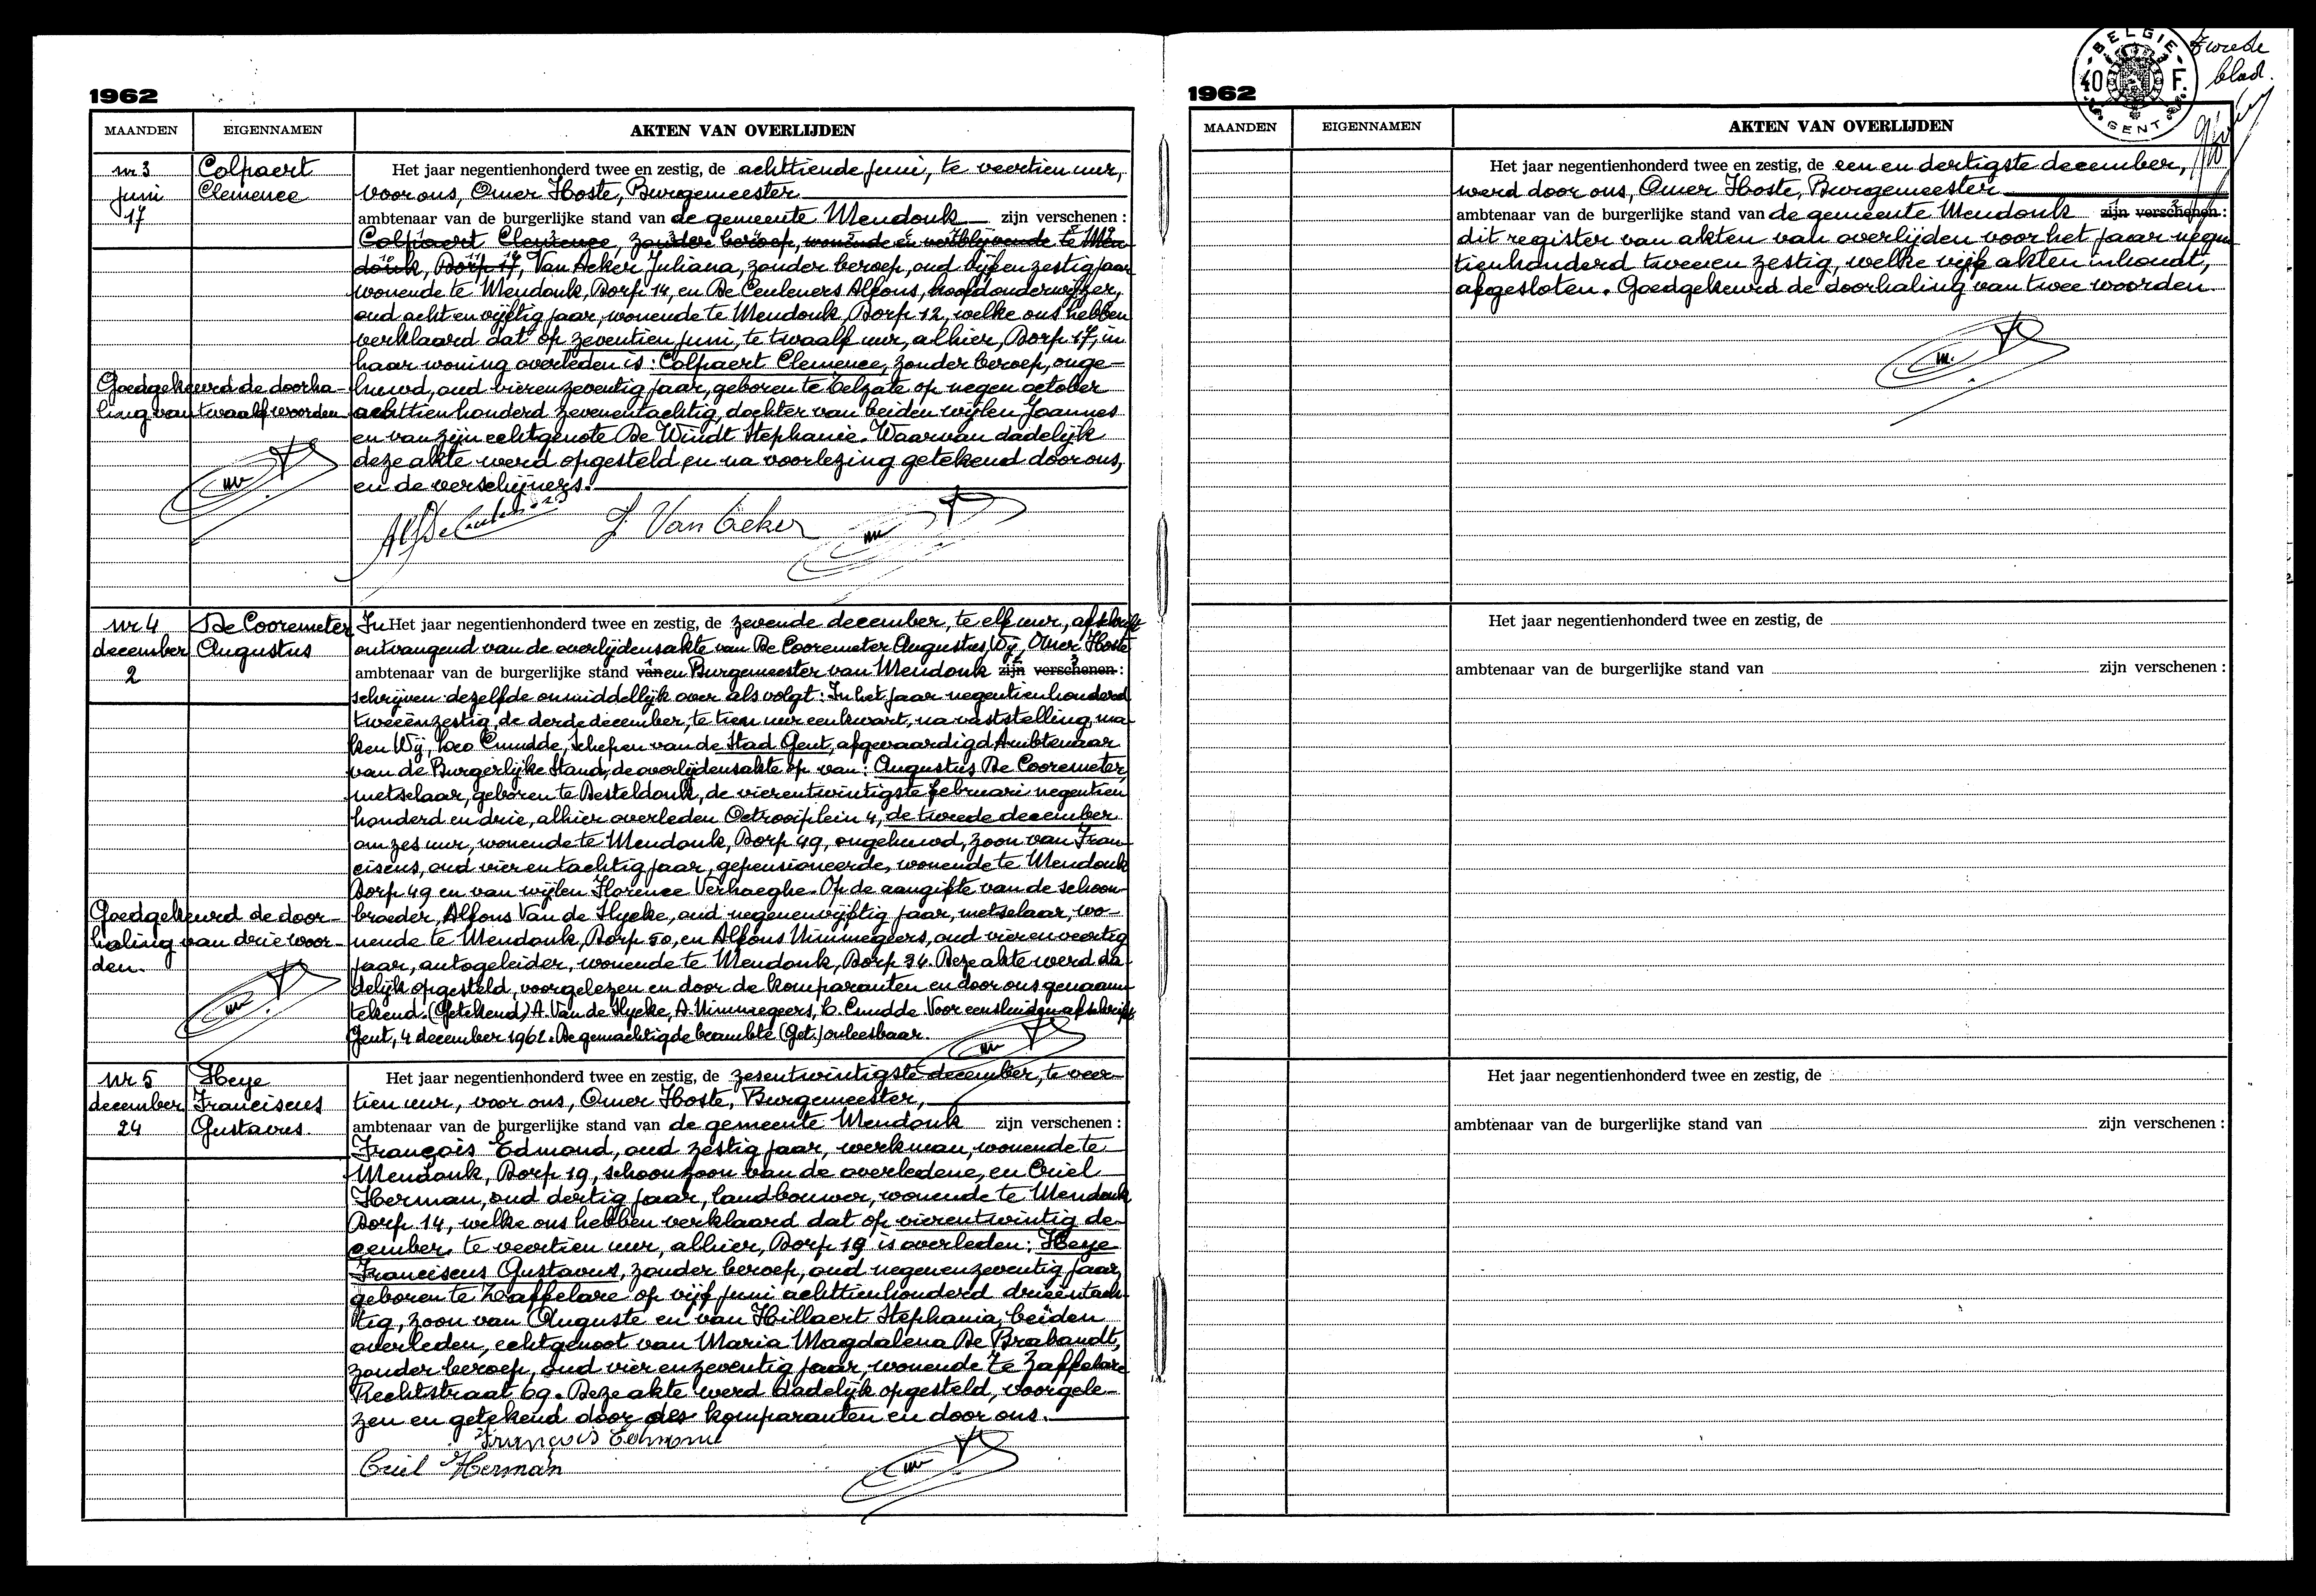 1962
MAANDEN EIGENNAMEN AKTEN VAN OVERLIJDEN
nr 3
juni
17
Colpaert
Clemence
Het jaar negentienhonderd twee en zestig, de achttiende juni, te veertien uur,
voor ons, Omer Hoste, Burgemeester
ambtenaar van de burgerlijke stand van de gemeente Mendonk zijn verschenen :
Colpaert Clemence, zonder beroep, wonende en verblijvende te Men
donk, Dorp 17, Van Acker Juliana, zonder beroep, oud vijfenzestig jaar
wonende te Mendonk, Dorp 14, en De Ceuleners Alfons, hoofdonderwijzer,
oud acht en vijftig jaar, wonende te Mendonk, Dorp 12, welke ons hebben
verklaard dat op zeventien juni, te twaalf uur, alhier, Dorp 17, in
haar woning overleden is : Colpaert Clemence, zonder beroep, onge-
huwd, oud vierenzeventig jaar, geboren te Zelzate op negen october
achttienhonderd zevenentachtig, dochter van beiden wijlen Joannes
en van zijn echtgenote De Windt Stephanie. Waarvan dadelijk
deze akte werd opgesteld en na voorlezing getekend door ons,
en de verschijners.
Goedgekeurd de doorha-
ling van twaalf woorden
J. Van Acker
nr 4
december
2
De Cooremeter
Augustus
In Het jaar negentienhonderd twee en zestig, de zevende december, te elf uur, afschrift
ontvangend van de overlijdensakte van De Cooremeter Augustus, Wij, Omer Hoste
ambtenaar van de burgerlijke stand van en Burgemeester van Mendonk zijn verschenen :
schrijven dezelfde onmiddellijk over als volgt : In het jaar negentienhonderd
tweeënzestig, de derde december, te tien uur een kwart, na vaststelling, ma-
ken Wij, Leo Cnudde, Schepen van de Stad Gent, afgevaardigd Ambtenaar
van de Burgerlijke Stand, de overlijdensakte op van : Augustus De Cooremeter,
metselaar, geboren te Desteldonk, de vierentwintigste februari negentien
honderd en drie, alhier overleden Octrooiplein 4, de tweede december
om zes uur, wonende te Mendonk, Dorp 49, ongehuwd, zoon van Fran-
ciscus, oud vier en tachtig jaar, gepensioneerde, wonende te Mendonk
Dorp 49 en van wijlen Florence Verhaeghe. Op de aangifte van de schoon-
broeder, Alfons Van de Hyeke, oud negenenvijftig jaar, metselaar, wo-
nende te Mendonk, Dorp 50, en Alfons Nimmegeers, oud vierenveertig
jaar, autogeleider, wonende te Mendonk, Dorp 34. Deze akte werd da-
delijk opgesteld, voorgelezen en door de komparanten en door ons genaam-
tekend. (Getekend) A. Van de Hyeke, A. Nimmegeers, L. Cnudde. Voor eensluidend afschrift
Gent, 4 december 1962. De gemachtigde beambte (Get.) onleesbaar.
Goedgekeurd de door-
haling van drie woor-
den.
nr 5
december
24
Heye
Franciscus
Gustavus
Het jaar negentienhonderd twee en zestig, de zesentwintigste december, te veer-
tien uur, voor ons, Omer Hoste, Burgemeester,
ambtenaar van de burgerlijke stand van de gemeente Mendonk zijn verschenen :
François Edmond, oud zestig jaar, werkman, wonende te
Mendonk, Dorp 19, schoonzoon van de overledene, en Criel
Herman, oud dertig jaar, landbouwer, wonende te Mendonk
Dorp 14, welke ons hebben verklaard dat op vierentwintig de-
cember, te veertien uur, alhier, Dorp 19 is overleden : Heye
Franciscus Gustavus, zonder beroep, oud negenenzeventig jaar,
geboren te Zaffelare op vijf juni achttienhonderd drieëntach-
tig, zoon van Auguste en van Hillaert Stephania, beiden
overleden, echtgenoot van Maria Magdalena De Brabandt,
zonder beroep, oud vier enzeventig jaar, wonende te Zaffelare
Rechtstraat 69. Deze akte werd dadelijk opgesteld, voorgele-
zen en getekend door des komparanten en door ons.
François Edmond
Criel Herman
1962
BELGIE
40 F.
GENT
Tweede
blad.
MAANDEN EIGENNAMEN AKTEN VAN OVERLIJDEN
Het jaar negentienhonderd twee en zestig, de een en dertigste december,
werd door ons, Omer Hoste, Burgemeester
ambtenaar van de burgerlijke stand van de gemeente Mendonk zijn verschenen :
dit register van akten van overlijden voor het jaar negen
tienhonderd tweeen zestig, welke vijf akten inhoudt,
afgesloten. Goedgekeurd de doorhaling van twee woorden.
Het jaar negentienhonderd twee en zestig, de
ambtenaar van de burgerlijke stand van zijn verschenen :
Het jaar negentienhonderd twee en zestig, de
ambtenaar van de burgerlijke stand van zijn verschenen :